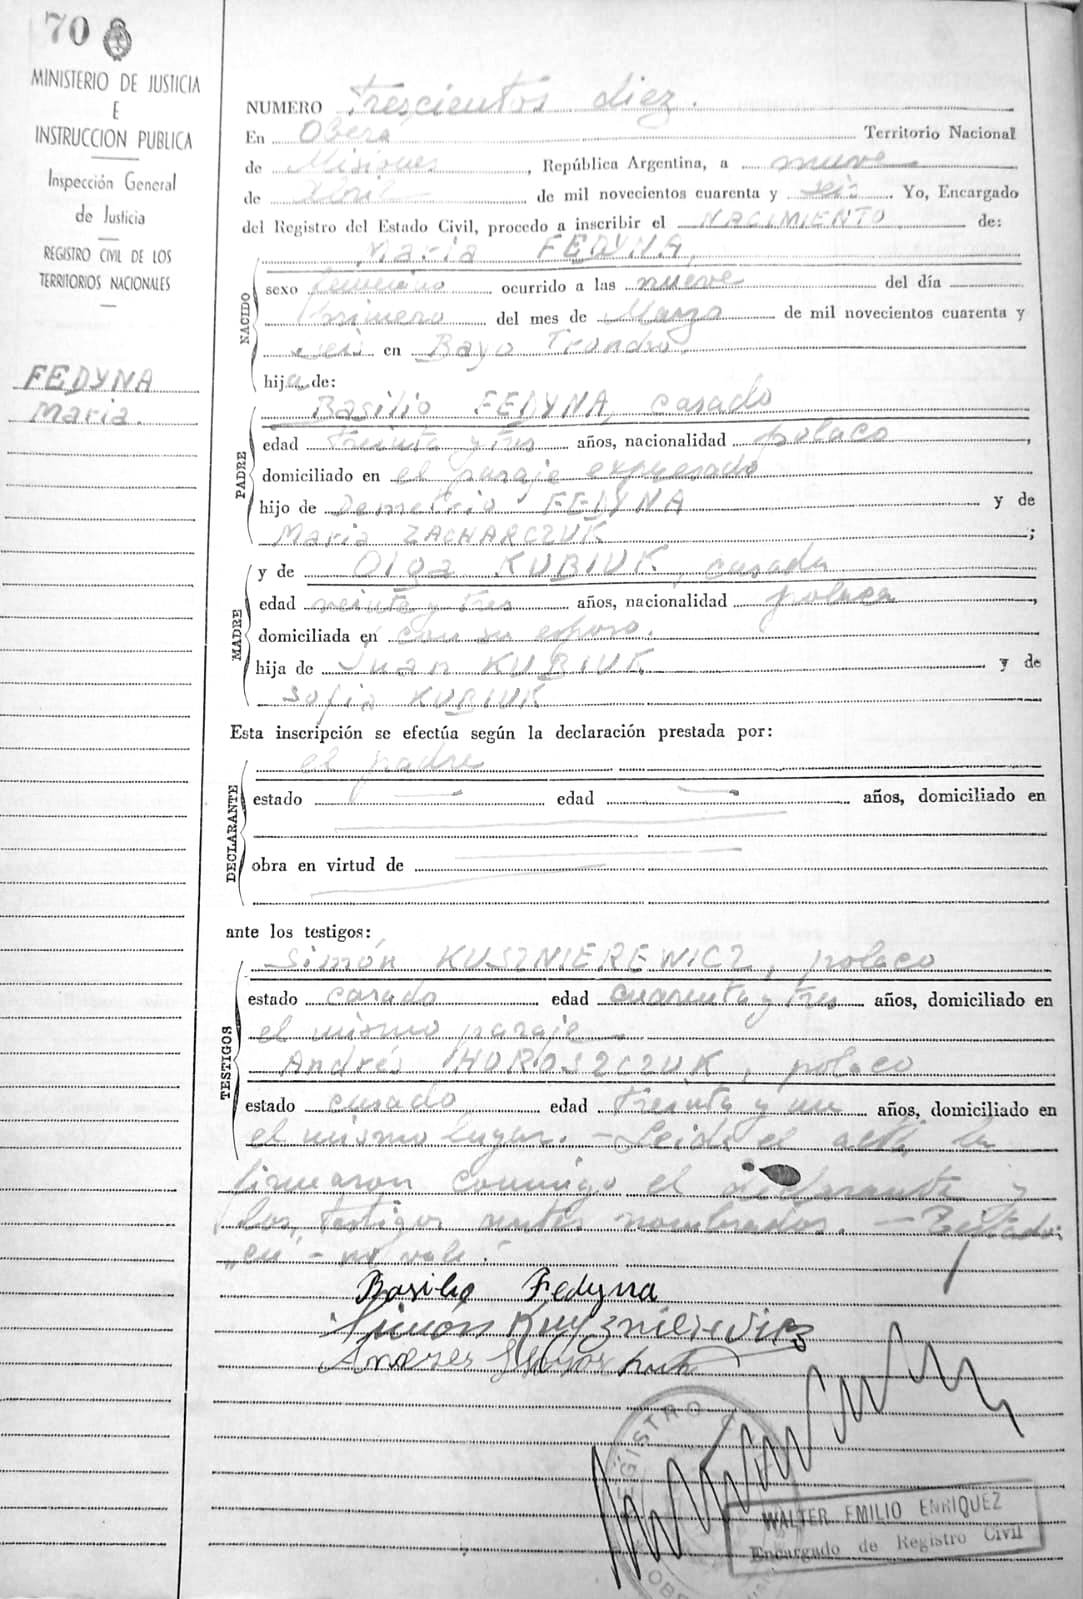 70
MINISTERIO DE JUSTICIA
E
INSTRUCCION PUBLICA
Inspección General
de Justicia
REGISTRO CIVIL DE LOS
TERRITORIOS NACIONALES
FEDYNA
Maria.
NUMERO Trescientos diez.
En Oberá Territorio Nacional
de Misiones, República Argentina, a nueve
de Abril de mil novecientos cuarenta y seis. Yo, Encargado
del Registro del Estado Civil, procedo a inscribir el NACIMIENTO de:
NACIDO
Maria FEDYNA,
sexo femenino ocurrido a las nueve del día
primero del mes de Marzo de mil novecientos cuarenta y
seis en Bayo Troncho,
hija de:
PADRE
Basilio FEDYNA, casado
edad treinta y tres años, nacionalidad polaco,
domiciliado en el paraje expresado
hijo de Demetrio FEDYNA y de
Maria ZACHARCZUK;
MADRE
y de Olga KUBIUK, casada
edad veinte y tres años, nacionalidad polaca,
domiciliada en con su esposo.
hija de Juan KUBIUK y de
Sofia KUBIUK
Esta inscripción se efectúa según la declaración prestada por:
DECLARANTE
el padre
estado edad años, domiciliado en
obra en virtud de
ante los testigos:
TESTIGOS
Simón KUSZNIEREWICZ, polaco
estado casado edad cuarenta y tres años, domiciliado en
el mismo paraje.
Andrés HOROSZCZUK, polaco
estado casado edad treinta y un años, domiciliado en
el mismo lugar. - Leida el acta, la
firmaron conmigo el declarante y
los testigos antes nombrados. - Testado:
"en" - no vale.
Basilio Fedyna
Simon Kusznierewicz
REGISTRO
WALTER EMILIO ENRIQUEZ
Encargado de Registro Civil